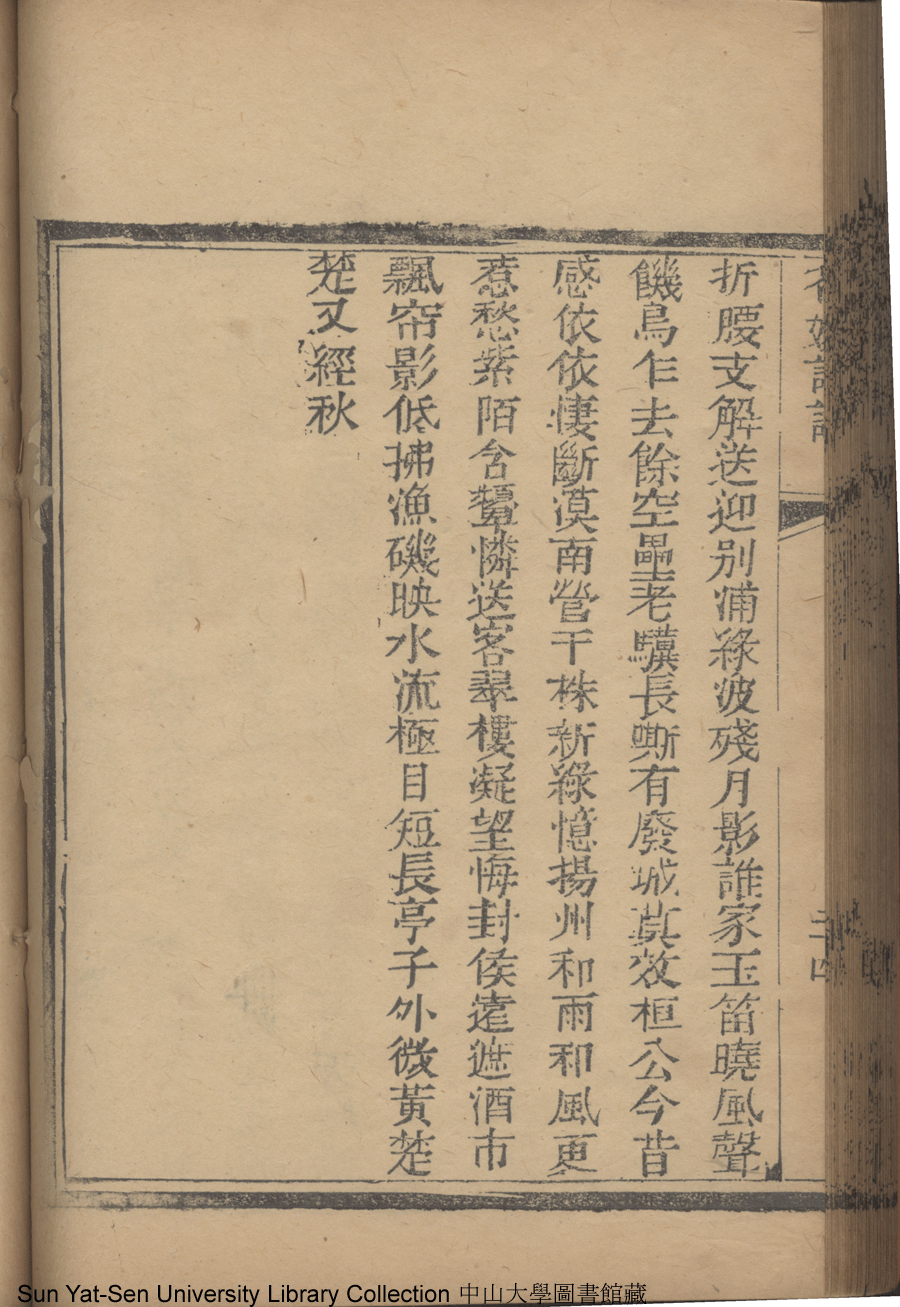 折腰支解送迎別浦綠波殘月影誰家玉笛曉風聲
饑烏乍去餘空壘老驥長嘶有廢城莫效桓公今昔
感依依悽斷漠南營千株新綠憶揚州和雨和風更
惹愁紫陌含顰憐送客翠樓凝望悔封侯遠遮酒市
飄帘影低拂漁磯映水流極目短長亭子外微黃楚
楚又經秋
二十四
Sun Yat-Sen University Library Collection 中山大學圖書館藏